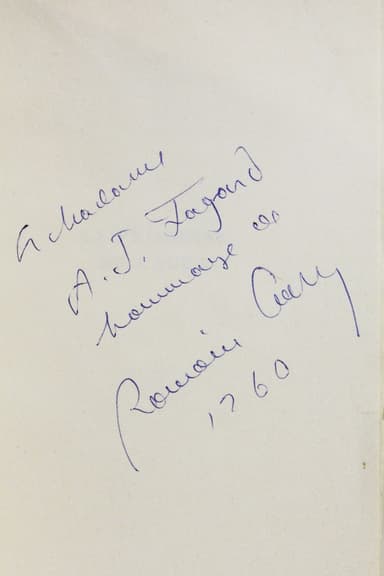 à Madame
A. J. Fagard
hommage de
Romain Gary
1960